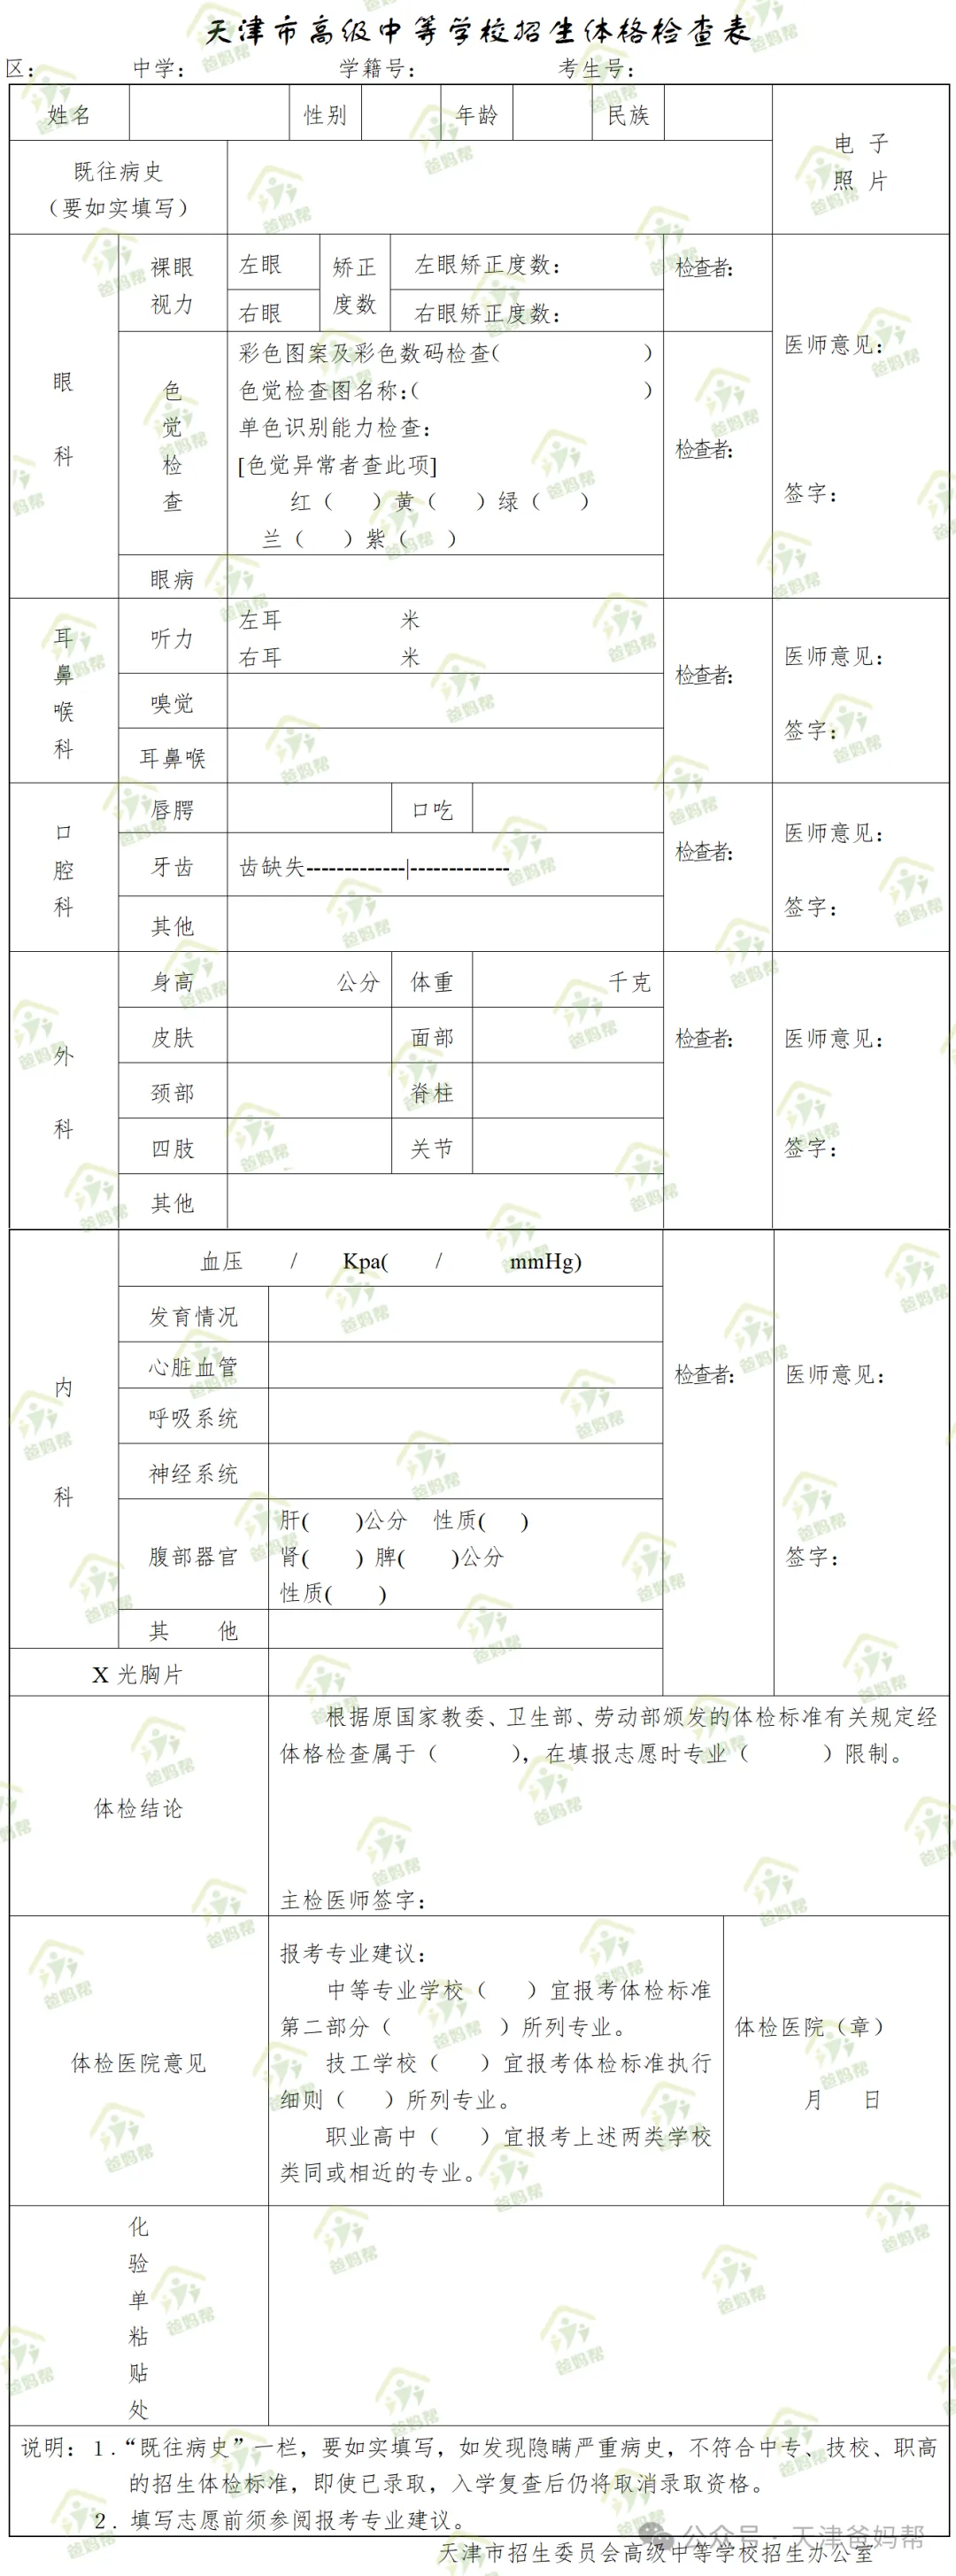 天津市高级中等学校招生体格检查表
区： 中学： 学籍号： 考生号：
姓名 性别 年龄 民族
电 子
照 片
既往病史
（要如实填写）
眼
科
裸眼
视力
左眼
右眼
矫正
度数
左眼矫正度数：
右眼矫正度数：
检查者：
医师意见：
签字：
色
觉
检
查
彩色图案及彩色数码检查( )
色觉检查图名称：( )
单色识别能力检查：
[色觉异常者查此项]
红（ ）黄（ ）绿（ ）
兰（ ）紫（ ）
检查者：
眼病
耳
鼻
喉
科
听力
左耳 米
右耳 米
嗅觉
耳鼻喉
检查者：
医师意见：
签字：
口
腔
科
唇腭 口吃
牙齿 齿缺失-------------|-------------
其他
检查者：
医师意见：
签字：
外
科
身高 公分 体重 千克
皮肤 面部
颈部 脊柱
四肢 关节
其他
检查者：
医师意见：
签字：
内
科
血压 / Kpa( / mmHg)
发育情况
心脏血管
呼吸系统
神经系统
腹部器官
肝( )公分 性质( )
肾( ) 脾( )公分
性质( )
其 他
检查者：
医师意见：
签字：
X 光胸片
体检结论
根据原国家教委、卫生部、劳动部颁发的体检标准有关规定经
体格检查属于（ ），在填报志愿时专业（ ）限制。
主检医师签字：
体检医院意见
报考专业建议：
中等专业学校（ ）宜报考体检标准
第二部分（ ）所列专业。
技工学校（ ）宜报考体检标准执行
细则（ ）所列专业。
职业高中（ ）宜报考上述两类学校
类同或相近的专业。
体检医院（章）
月 日
化
验
单
粘
贴
处
说明：1．“既往病史”一栏，要如实填写，如发现隐瞒严重病史，不符合中专、技校、职高
的招生体检标准，即使已录取，入学复查后仍将取消录取资格。
2．填写志愿前须参阅报考专业建议。
天津市招生委员会高级中等学校招生办公室
公众号·天津爸妈帮
爸妈帮